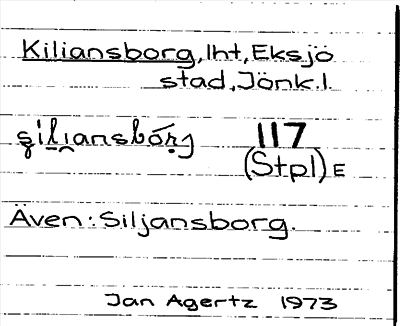 Kiliansborg, lht, Eksjö
stad, Jönk.l.
117
(Stpl) E
Även: Siljansborg.
Jan Agertz 1973